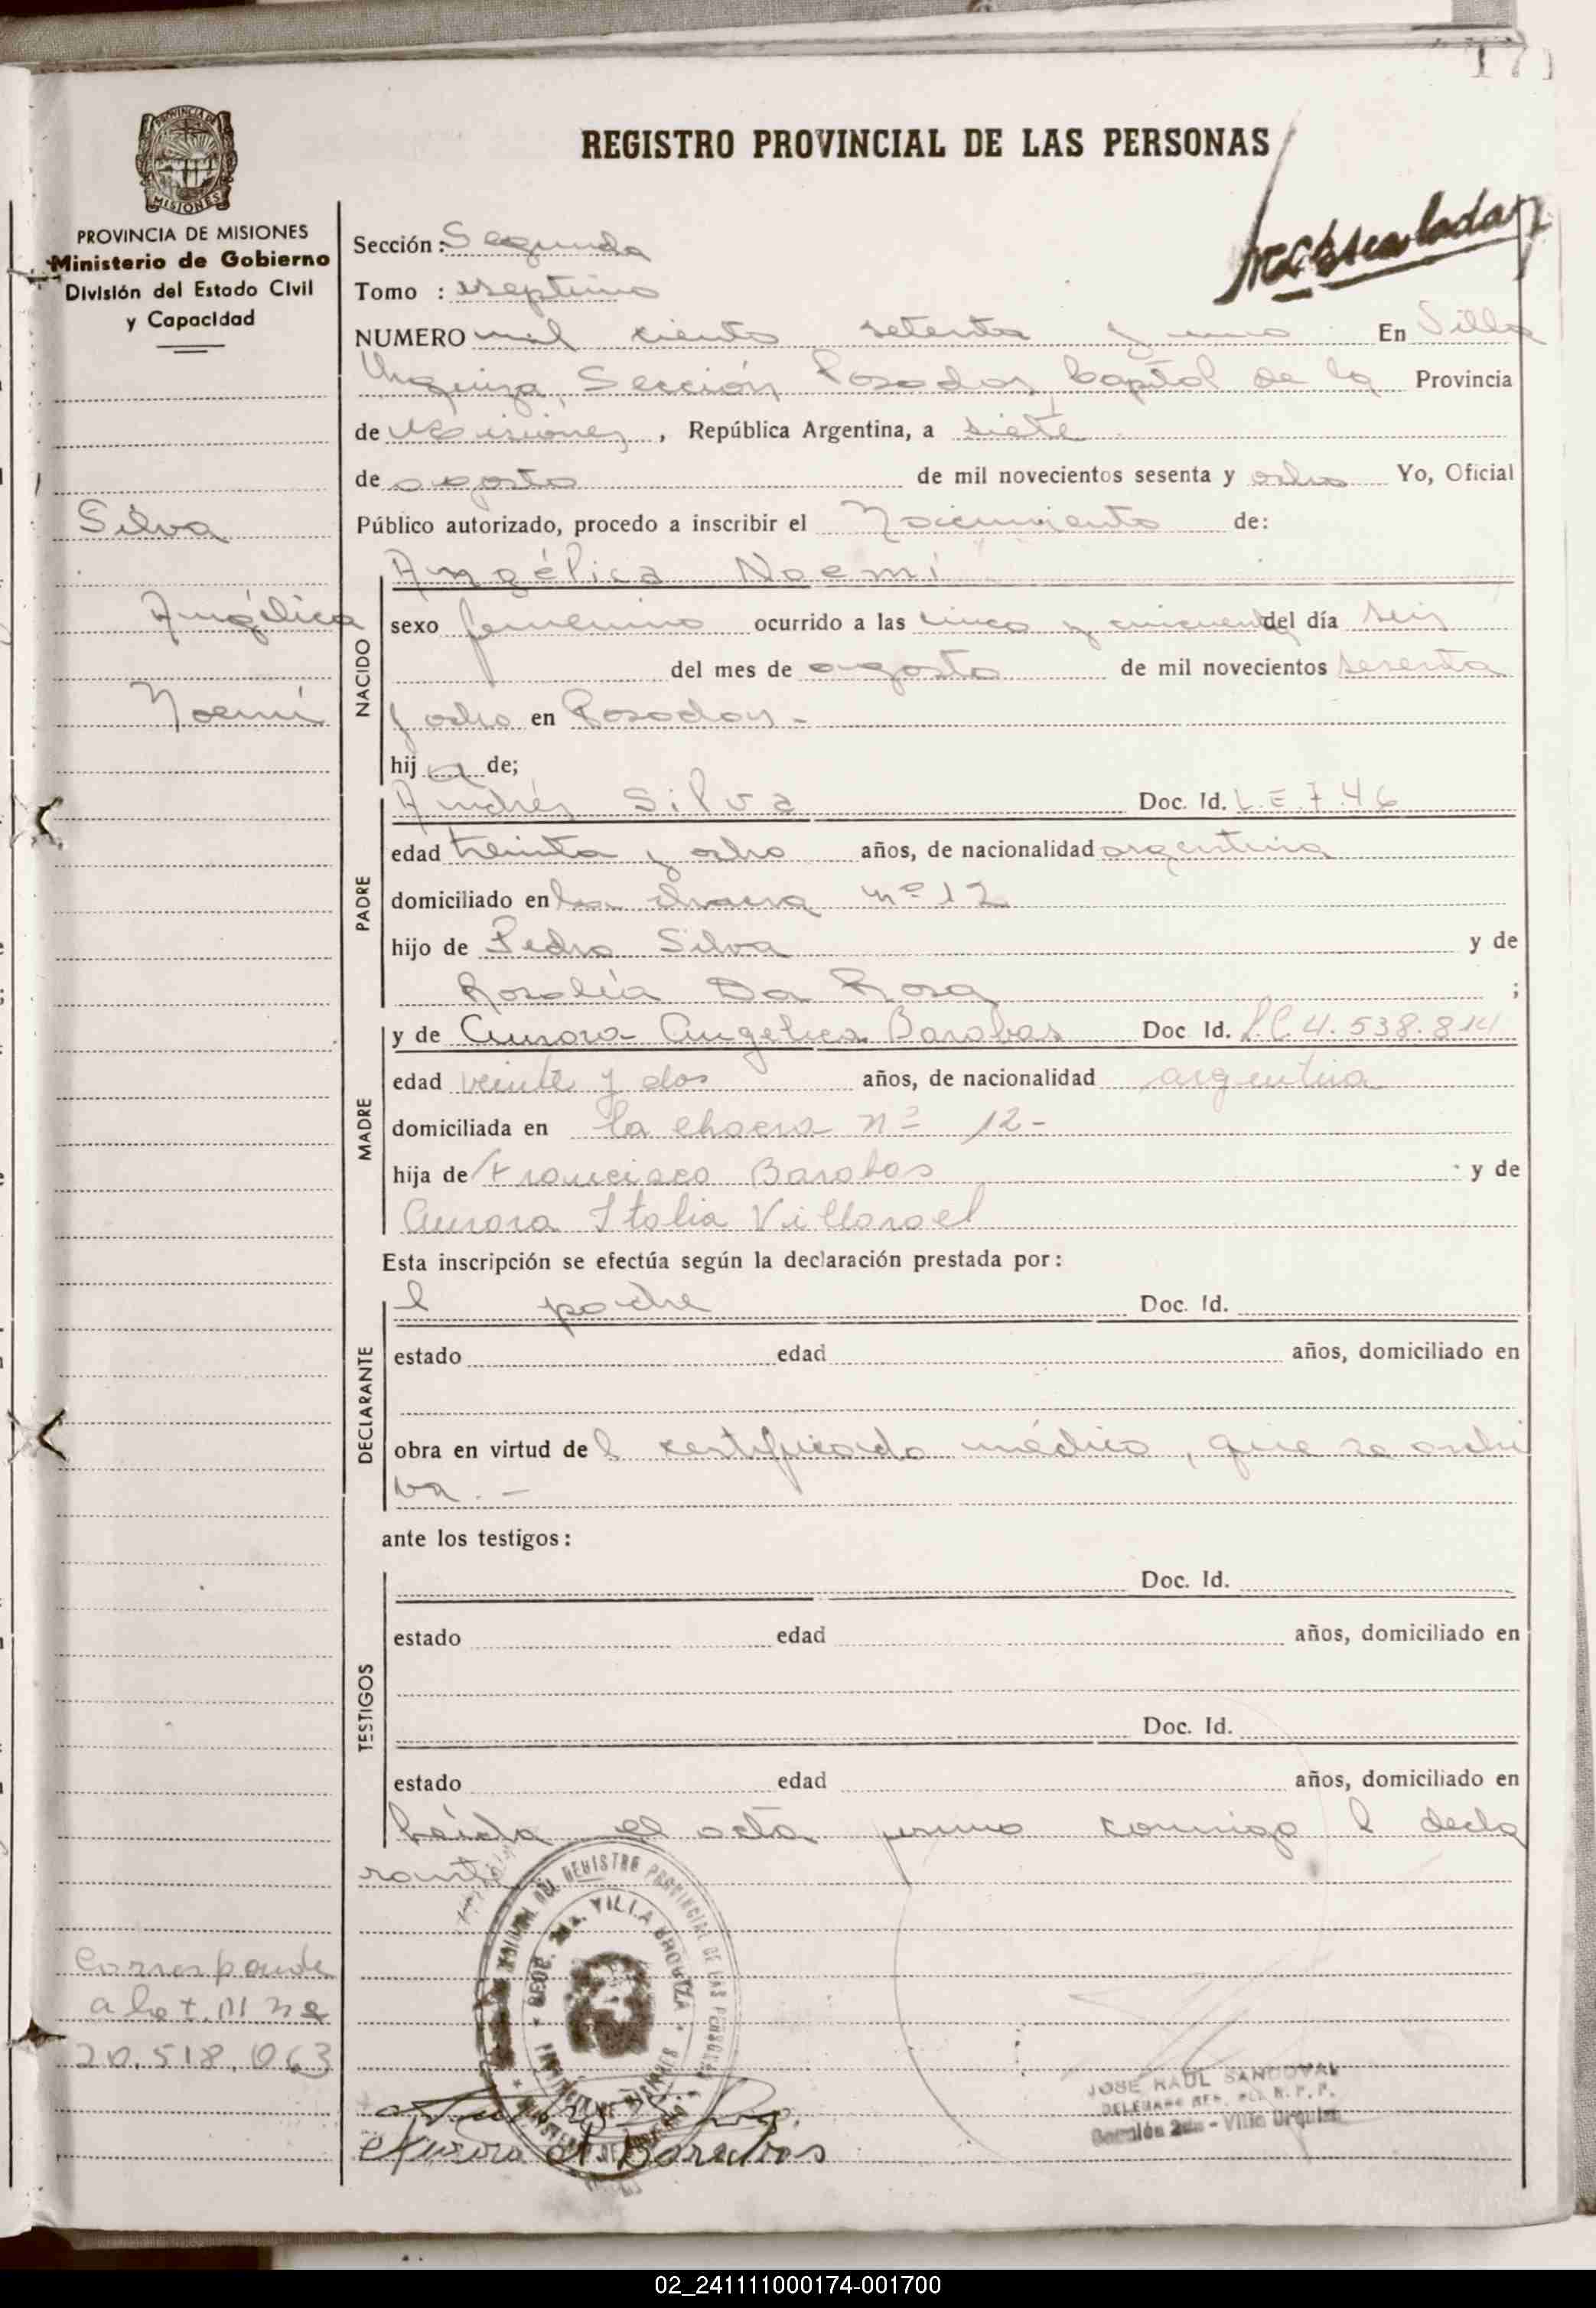 171
REGISTRO PROVINCIAL DE LAS PERSONAS
PROVINCIA DE MISIONES
MISIONES
PROVINCIA DE MISIONES
Ministerio de Gobierno
División del Estado Civil
y Capacidad
Sección: Segunda
Tomo : septimo
NUMERO mil ciento setenta y uno En Villa
Urquiza, Sección Posadas, Capital de la Provincia
de Misiones, República Argentina, a siete
de agosto de mil novecientos sesenta y ocho Yo, Oficial
Público autorizado, procedo a inscribir el Nacimiento de:
Silva
Angélica
Noemí
NACIDO
Angélica Noemí
sexo femenino ocurrido a las cinco y cincuenta del día seis
del mes de agosto de mil novecientos sesenta
y ocho en Posadas.-
hij a de;
PADRE
Andrés Silva Doc. Id. L.E.7.46
edad treinta y ocho años, de nacionalidad argentina
domiciliado en la chacra nº 12
hijo de Pedro Silva y de
Rosalía Da Rosa ;
MADRE
y de Aurora Angelica Barabas Doc Id. L.C.4.538.814
edad veinte y dos años, de nacionalidad argentina
domiciliada en la chacra nº 12-
hija de Francisco Barabas y de
Aurora Italia Villaroel
Esta inscripción se efectúa según la declaración prestada por:
DECLARANTE
l padre Doc. Id.
estado edad años, domiciliado en
obra en virtud de l certificado médico, que se archi
va.-
ante los testigos:
TESTIGOS
Doc. Id.
estado edad años, domiciliado en
Doc. Id.
estado edad años, domiciliado en
Leída el acta firma conmigo l decla
rante
Corresponde
a la t. M nº
20.518.063
REGISTRO PROVINCIAL DE LAS PERSONAS
SECC. 2da. VILLA URQUIZA
Aurora A Barabas
JOSE RAUL SANDOVAL
DELEGADO
Sección 2da - Villa Urquiza
02_241111000174-001700